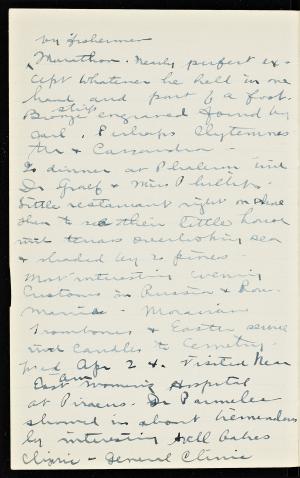 by fishermen
Marathon. Nearly perfect ex-
cept whatever he held in one
hand and part of a foot.
strip
Bronze engraved found by
Carl. Perhaps Clytemnes
tra & Cassandra -
To dinner at Phalerum with
Dr Graef & Miss Phillips.
Little restaurant right on shore
then to see their little house
with terrace overlooking sea
& shaded by 2 pines -
Most interesting evening
Customs in Russia & Rou-
mania - Moravian
Trombones & Easter service
with candles to Cemetery.
Wed Apr 24. Visited Near
East Am Women's Hospital
at Piraeus. Dr Parmelee
showed us about tremendous
ly interesting well babies
Clinic - General Clinic